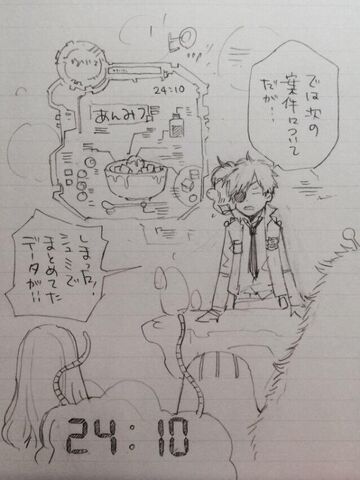 では次の
案件について
だが…
24:10
あんみつ
しまった!
シュミで
まとめてた
データが…
24:10